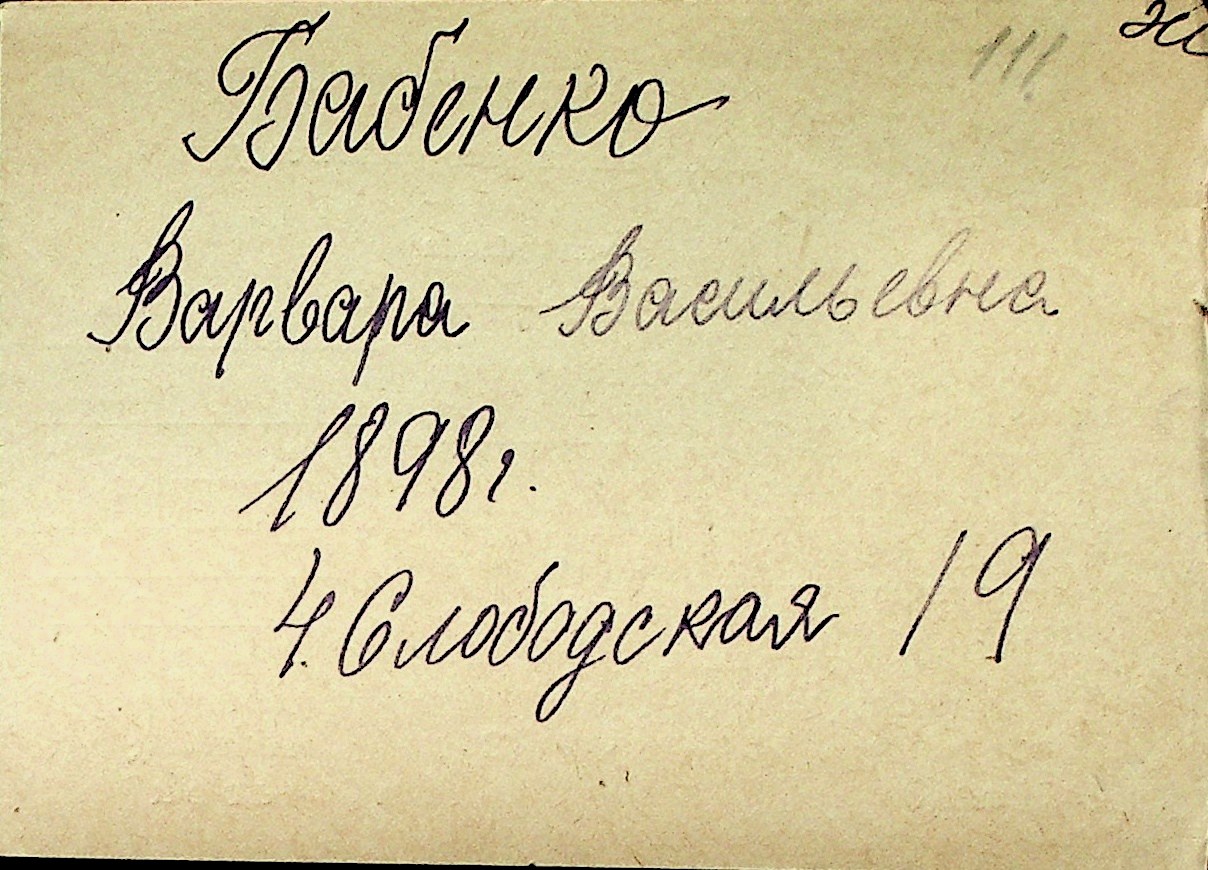 Бабенко
Варвара Васильевна
1898г.
4. Слободская 19